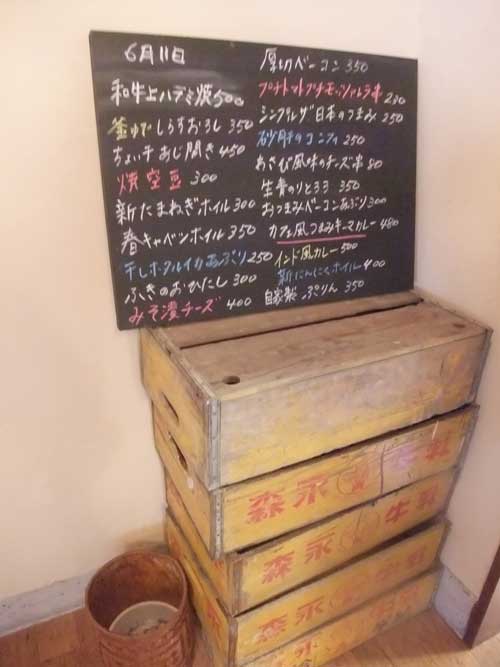 6月11日
和牛上ハラミ焼 500
釜ゆでしらすおろし 350
ちょい干あじ開き 450
焼空豆 300
新たまねぎホイル 300
春キャベツホイル 350
干しホタルイカあぶり 250
ふきのおひたし 300
みそ漬チーズ 400
厚切ベーコン 350
プチトマトプチモッツァレラ串 230
シンプルザ日本のつまみ 250
砂肝のコンフィ 250
わさび風味のチーズ串 80
生青のりとろろ 350
おつまみベーコンあぶり 300
カフェ風つまみキーマカレー 480
インド風カレー 500
新にんにくホイル 400
自家製 ぷりん 350
森永 牛乳
森永 牛乳
森永 牛乳